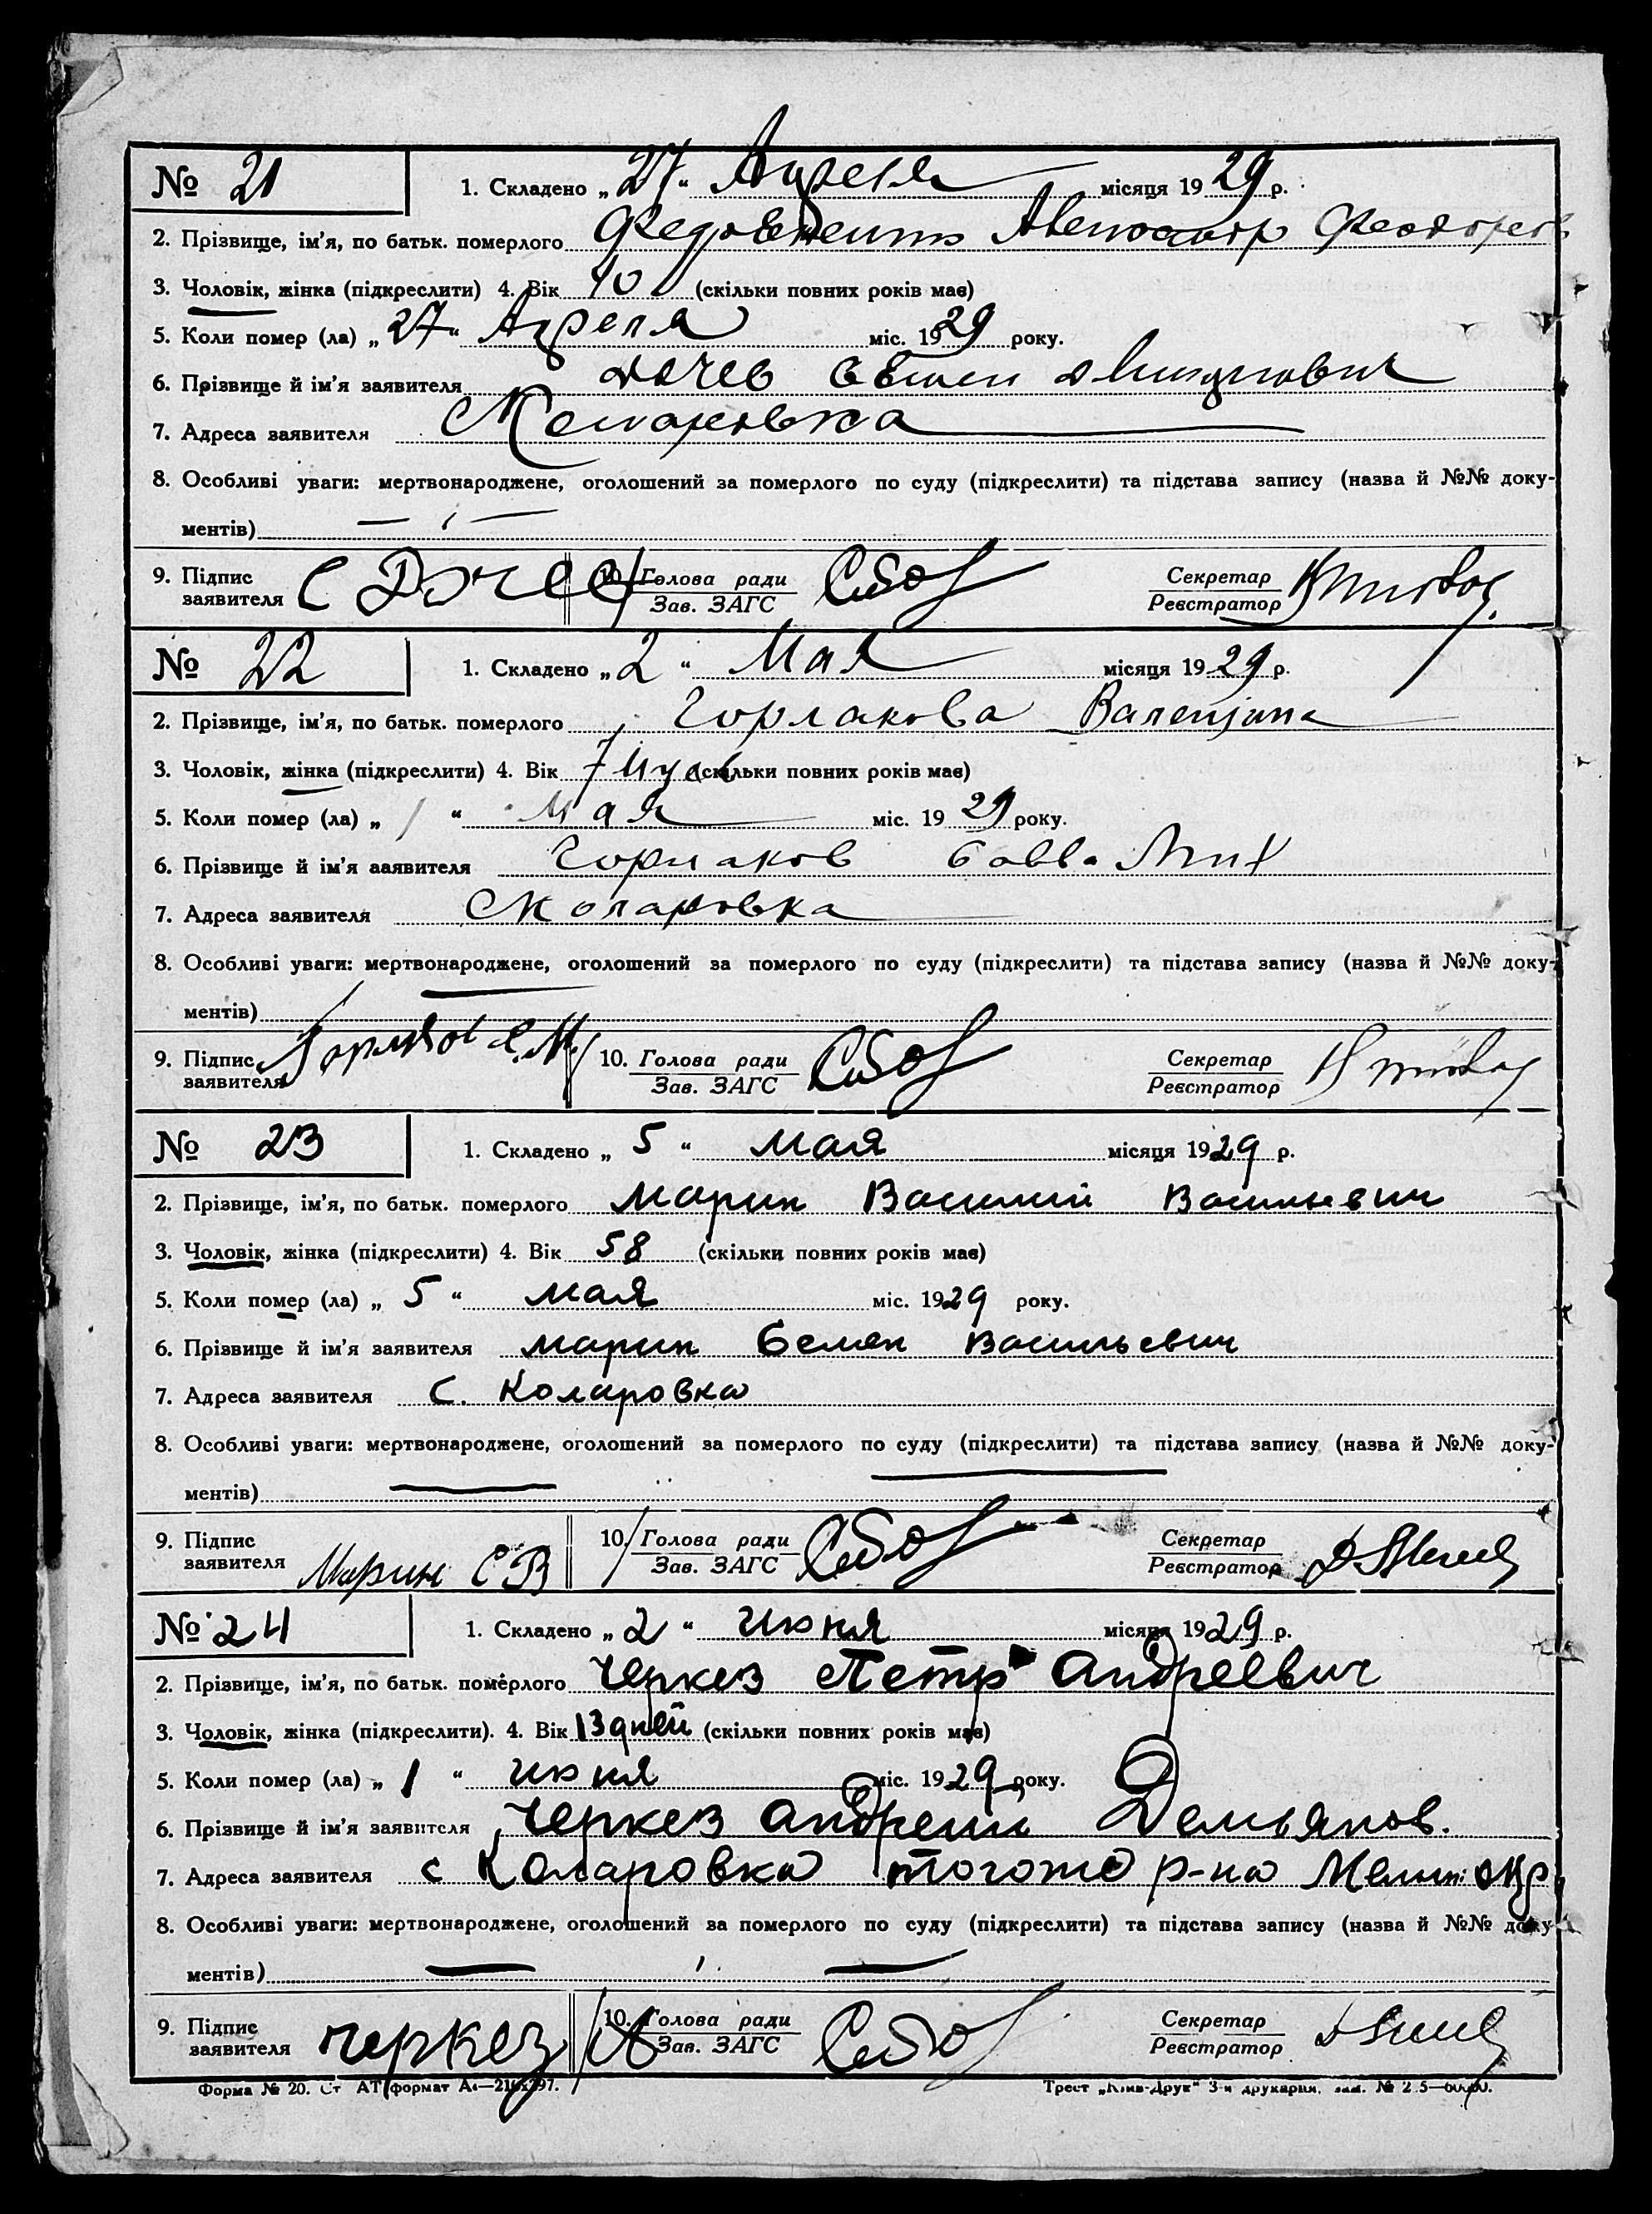 № 21 1. Складено „27“ Апреля місяця 1929 р.
2. Прізвище, ім’я, по батьк. померлого
3. Чоловік, жінка (підкреслити) 4. Вік (скільки повних років має)
5. Коли помер (ла) „27“ Апреля міс. 1929 року.
6. Прізвище й ім’я заявителя Дочев
7. Адреса заявителя
8. Особливі уваги: мертвонароджене, оголошений за померлого по суду (підкреслити) та підстава запису (назва й №№ доку-
ментів)
9. Підпис заявителя С Дочев 10. Голова ради Зав. ЗАГС Секретар Реєстратор
№ 22 1. Складено „2“ Мая місяця 1929 р.
2. Прізвище, ім’я, по батьк. померлого Горлакова Валентина
3. Чоловік, жінка (підкреслити) 4. Вік 7 (скільки повних років має)
5. Коли помер (ла) „1“ Мая міс. 1929 року.
6. Прізвище й ім’я заявителя Горлаков Савва Мих
7. Адреса заявителя Коларовка
8. Особливі уваги: мертвонароджене, оголошений за померлого по суду (підкреслити) та підстава запису (назва й №№ доку-
ментів)
9. Підпис заявителя 10. Голова ради Зав. ЗАГС Секретар Реєстратор
№ 23 1. Складено „5“ мая місяця 1929 р.
2. Прізвище, ім’я, по батьк. померлого Марин Василий Васильевич
3. Чоловік, жінка (підкреслити) 4. Вік 58 (скільки повних років має)
5. Коли помер (ла) „5“ мая міс. 1929 року.
6. Прізвище й ім’я заявителя Марин Семен Васильевич
7. Адреса заявителя с. Коларовка
8. Особливі уваги: мертвонароджене, оголошений за померлого по суду (підкреслити) та підстава запису (назва й №№ доку-
ментів)
9. Підпис заявителя Марин С В 10. Голова ради Зав. ЗАГС Секретар Реєстратор
№ 24 1. Складено „2“ июня місяця 1929 р.
2. Прізвище, ім’я, по батьк. померлого Черкез Петр Андреевич
3. Чоловік, жінка (підкреслити). 4. Вік 13 дней (скільки повних років має)
5. Коли помер (ла) „1“ июня міс. 1929 року.
6. Прізвище й ім’я заявителя Черкез Андрей Демьянов.
7. Адреса заявителя с Коларовка тогоже р-на Мелит. окр
8. Особливі уваги: мертвонароджене, оголошений за померлого по суду (підкреслити) та підстава запису (назва й №№ доку-
ментів)
9. Підпис заявителя Черкез 10. Голова ради Зав. ЗАГС Секретар Реєстратор
Форма № 20. Ст АТ формат А4—210х297. Трест „Київ-Друк“ 3-я друкарня,